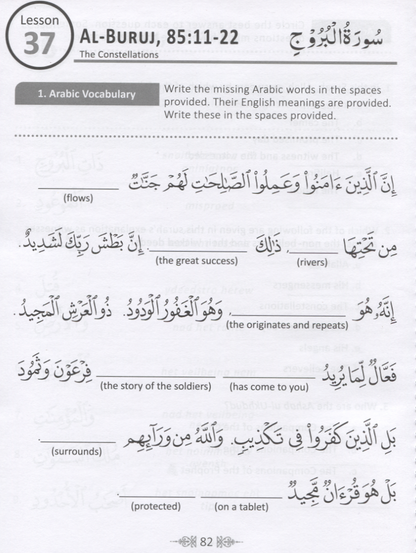 Lesson
37
AL-BURUJ, 85:11-22
The Constellations
سُورَةُ الْبُرُوْجِ
1. Arabic Vocabulary
Write the missing Arabic words in the spaces
provided. Their English meanings are provided.
Write these in the spaces provided.
إِنَّ ٱلَّذِينَ ءَامَنُوا۟ وَعَمِلُوا۟ ٱلصَّـٰلِحَـٰتِ لَهُمْ جَنَّـٰتٌ ____________
(flows)
مِن تَحْتِهَا ____________. ذَٰلِكَ ____________. إِنَّ بَطْشَ رَبِّكَ لَشَدِيدٌ.
(rivers) (the great success)
إِنَّهُۥ هُوَ ____________. وَهُوَ ٱلْغَفُورُ ٱلْوَدُودُ. ذُو ٱلْعَرْشِ ٱلْمَجِيدُ.
(the originates and repeats)
فَعَّالٌ لِّمَا يُرِيدُ ____________ ____________ فِرْعَوْنَ وَثَمُودَ
(has come to you) (the story of the soldiers)
بَلِ ٱلَّذِينَ كَفَرُوا۟ فِى تَكْذِيبٍ. وَٱللَّهُ مِن وَرَآئِهِم ____________.
(surrounds)
بَلْ هُوَ قُرْءَانٌ مَّجِيدٌ ____________ ____________.
(on a tablet) (protected)
82